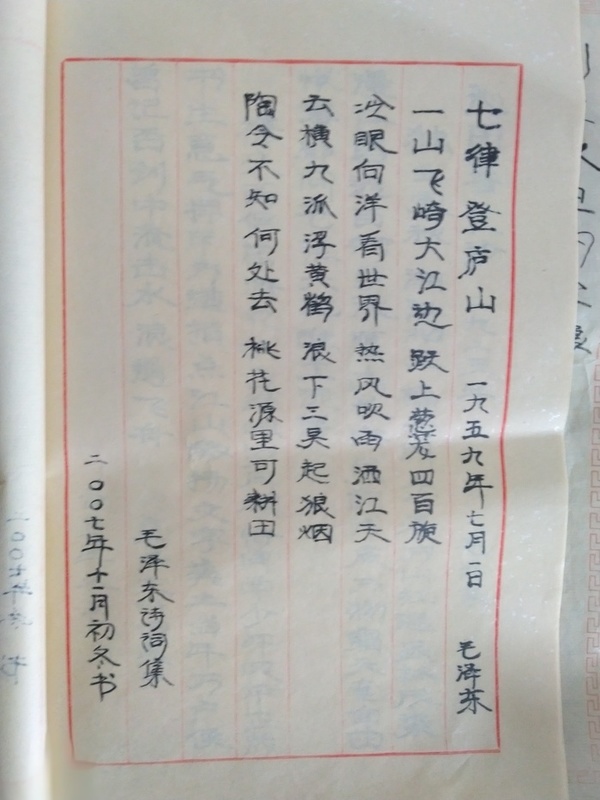 七律 登庐山 一九五九年七月一日 毛泽东
一山飞崎大江边 跃上葱茏四百旋
冷眼向洋看世界 热风吹雨洒江天
云横九派浮黄鹤 浪下三吴起狼烟
陶令不知何处去 桃花源里可耕田
毛泽东诗词集
二〇〇七年十一月初冬书